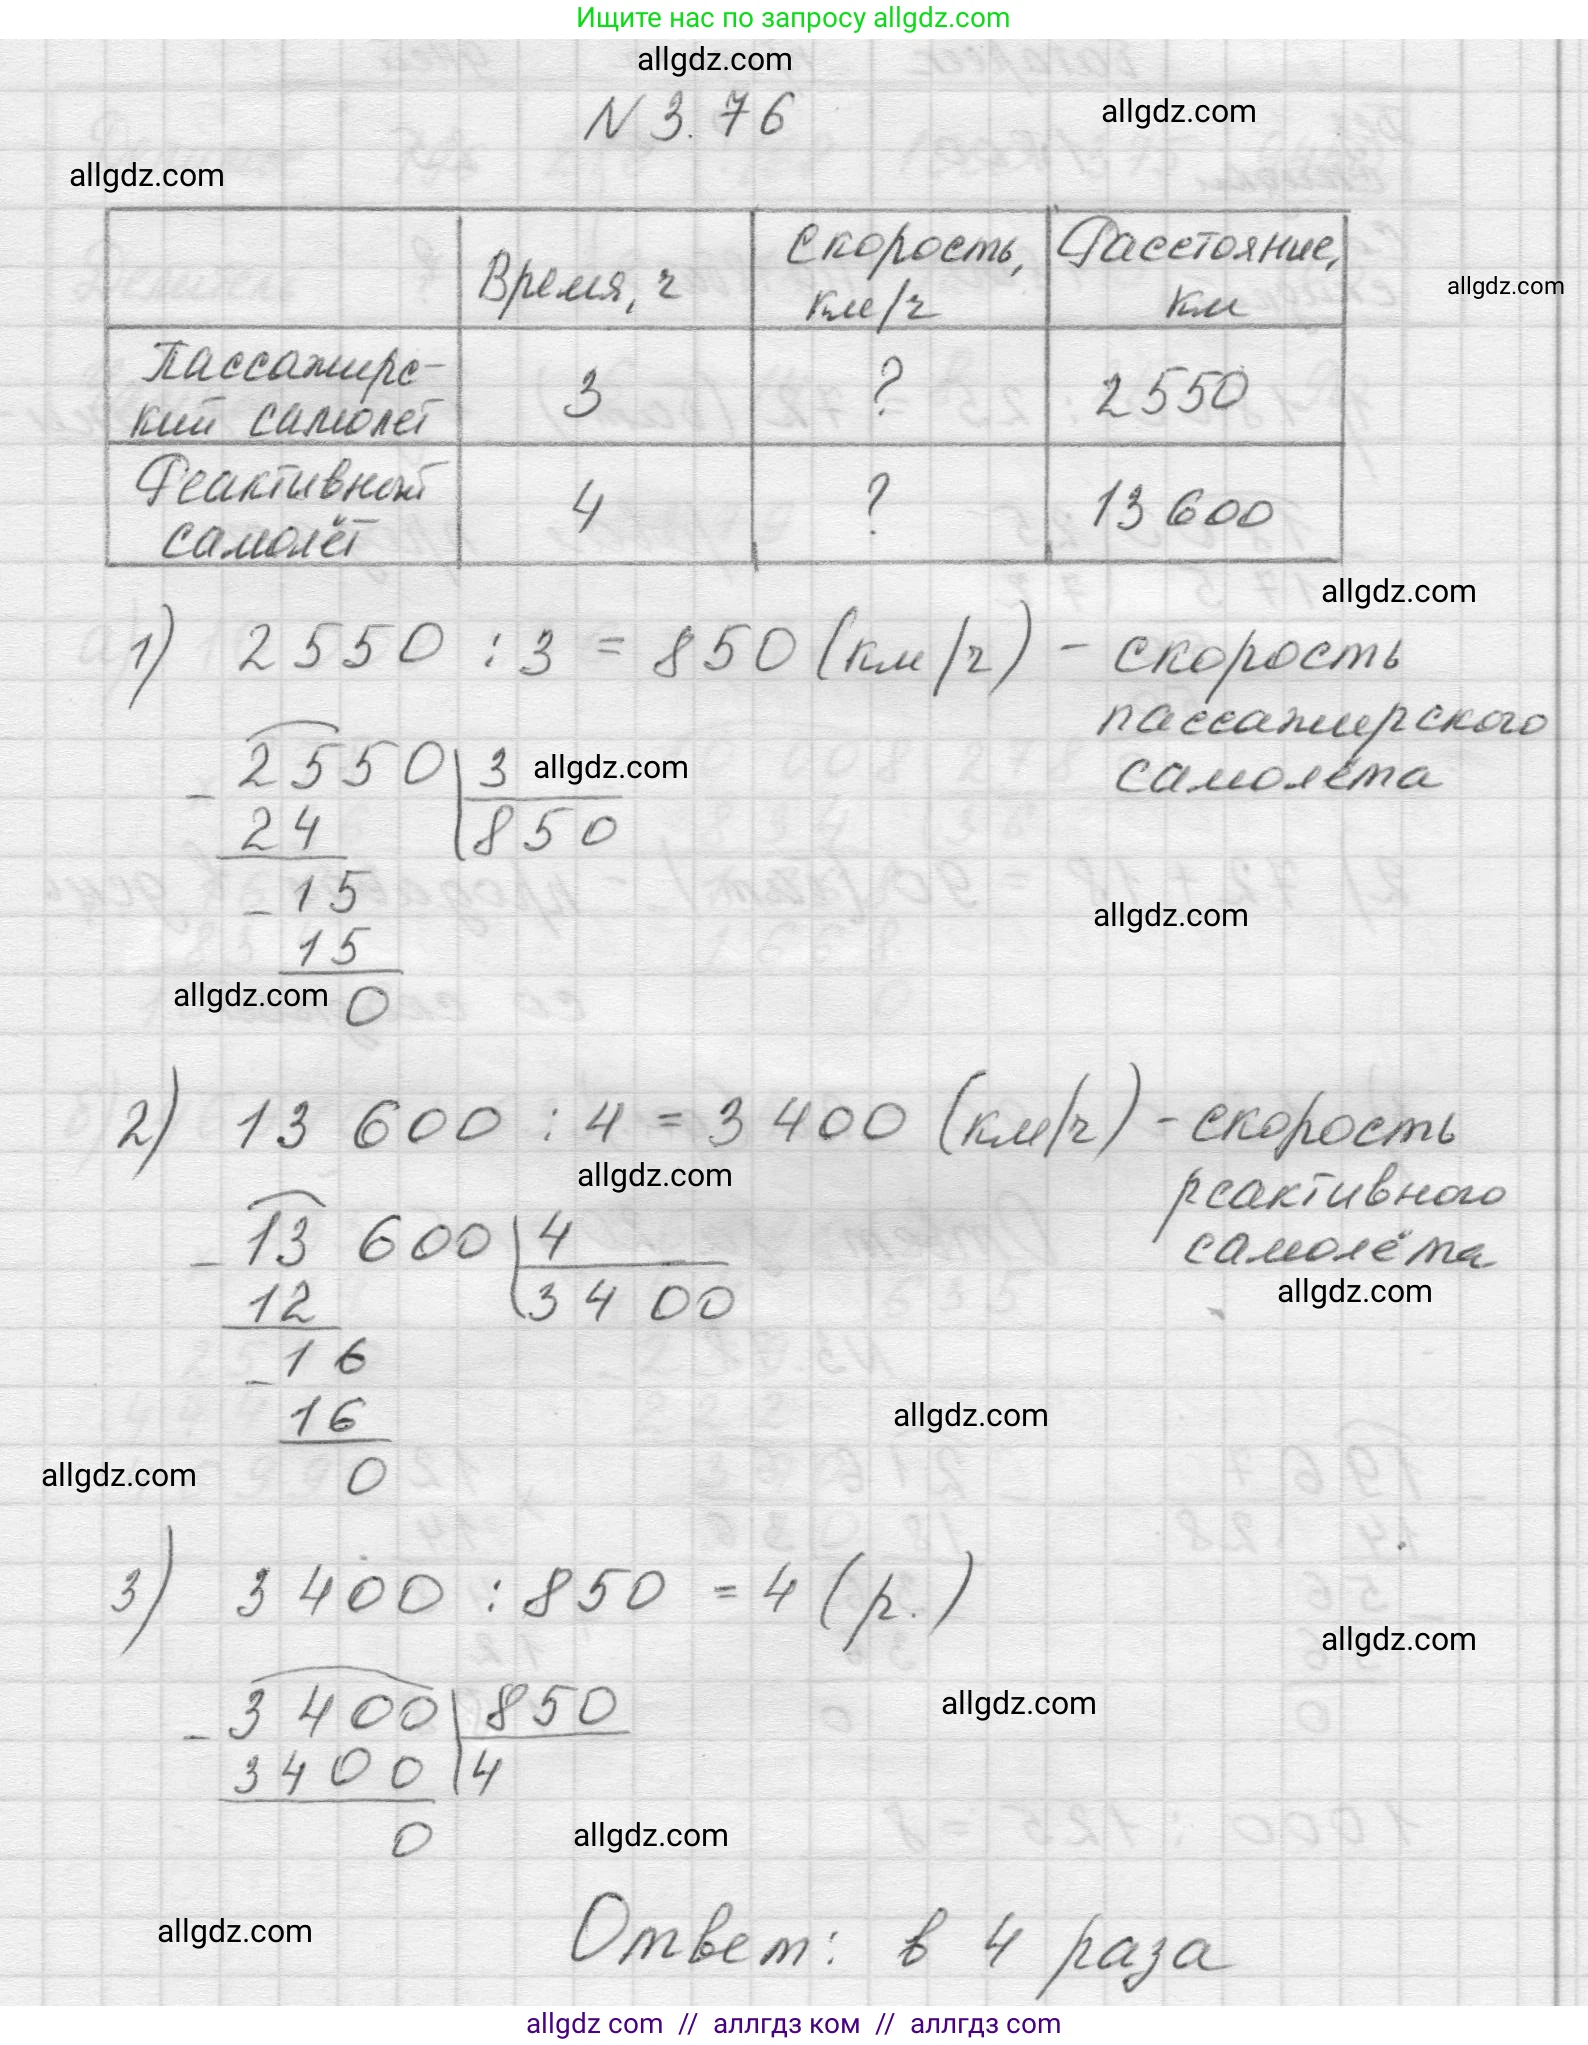 Ищите нас по запросу allgdz.com
allgdz.com
N 3.76
allgdz.com
allgdz.com
Время, ч
Скорость, км/ч
Расстояние, км
allgdz.com
Пассажирс-
кий самолёт
3
?
2550
Реактивный
самолёт
4
?
13 600
allgdz.com
1) 2550 : 3 = 850 (км/ч) - скорость
пассажирского
самолёта
2550 3
allgdz.com
- 24 850
- 15
allgdz.com
15
allgdz.com
0
2) 13 600 : 4 = 3 400 (км/ч) - скорость
allgdz.com
реактивного
самолёта
- 13 600 4
allgdz.com
12 3 4 00
- 16
16
allgdz.com
allgdz.com
0
3) 3 400 : 850 = 4 (р.)
allgdz.com
- 3 400 850
allgdz.com
3400 4
0
allgdz.com
allgdz.com
Ответ: в 4 раза
allgdz com // аллгдз ком // аллгдз com